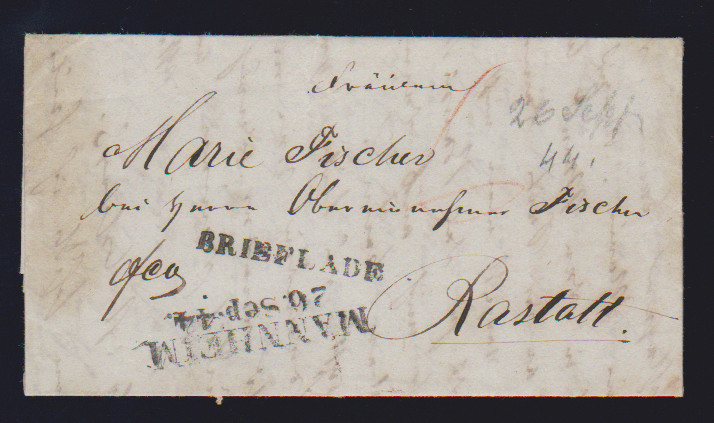 Fräulein
26 Sept
44.
Marie Fischer
bei Herrn Obereinnehmer Fischer
BRIEFLADE
fco
Rastatt.
MANNHEIM
26. Sep. 44.